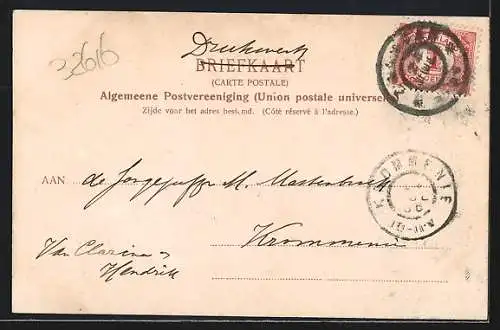 32616
Drukwerk
BRIEFKAART
(CARTE POSTALE)
Algemeene Postvereeniging (Union postale universelle)
Zijde voor het adres bestemd. (Côté réservé à l'adresse.)
KROMMENIE
AAN de M. Mastenbroek
Krommenie
Van Clarina &
Hendrik